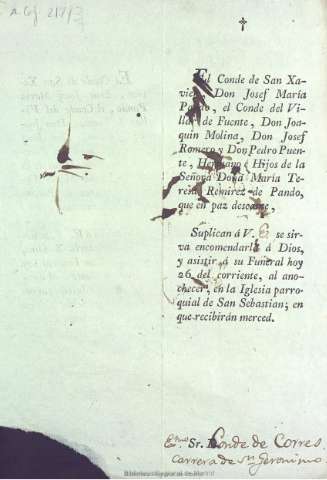 †
El Conde de San Xa-
vier, Don Josef María
Pando, el Conde del Vi-
llar de Fuente, Don Joa-
quin Molina, Don Josef
Romero y Don Pedro Puen-
te, Hermano é Hijos de la
Señora Doña María Te-
resa Remirez de Pando,
que en paz descanse.
Suplican á V. E. se sir-
va encomendarla á Dios,
y asistir á su Funeral hoy
26 del corriente, al ano-
checer, en la Iglesia parro-
quial de San Sebastian; en
que recibirán merced.
Sr. Conde de Corres.
Carrera de Sn Geronimo.